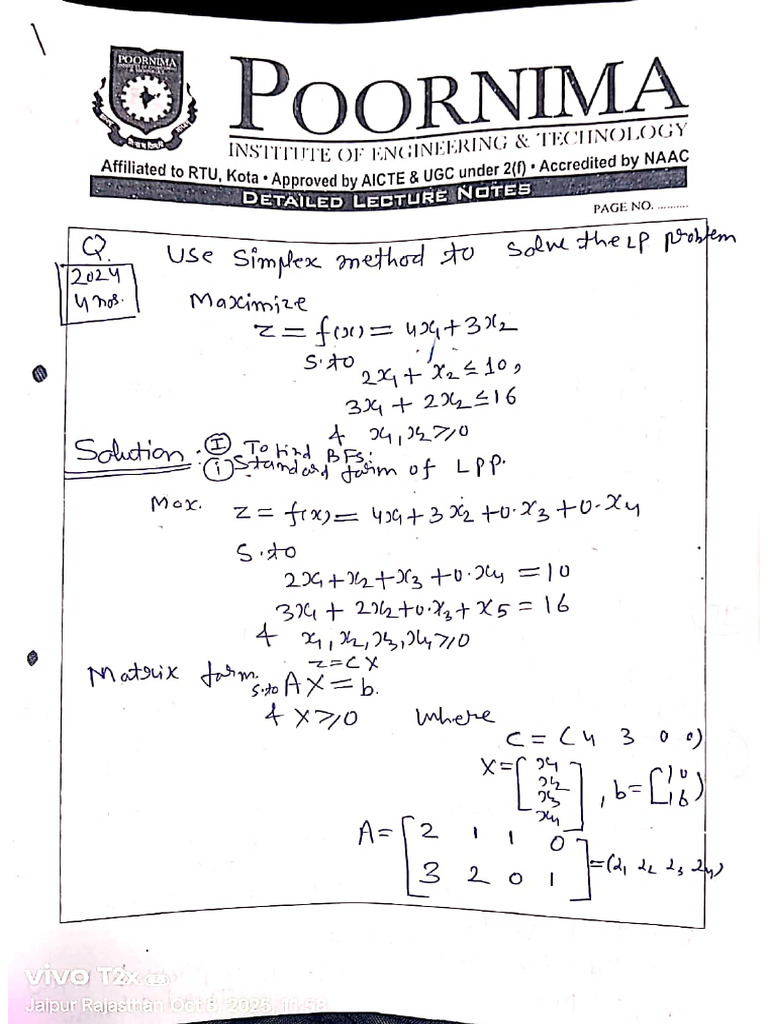 POORNIMA
INSTITUTE OF ENGINEERING & TECHNOLOGY
POORNIMA
INSTITUTE OF ENGINEERING & TECHNOLOGY
Affiliated to RTU, Kota • Approved by AICTE & UGC under 2(f) • Accredited by NAAC
DETAILED LECTURE NOTES
PAGE NO. ..........
Q. Use Simplex method to solve the LP problem
2024
4 nos.
Maximize
z = f(x) = 4x₁ + 3x₂
S.to
2x₁ + x₂ ≤ 10,
3x₁ + 2x₂ ≤ 16
& x₁, x₂ ≥ 0
Solution: (I) To find BFS:
(i) Standard form of LPP.
Max. z = f(x) = 4x₁ + 3x₂ + 0·x₃ + 0·x₄
S.to
2x₁ + x₂ + x₃ + 0·x₄ = 10
3x₁ + 2x₂ + 0·x₃ + x₅ = 16
& x₁, x₂, x₃, x₄ ≥ 0
Matrix form. z = CX
S.to AX = b.
& X ≥ 0 where
C = (4 3 0 0)
X = [x₁ x₂ x₃ x₄], b = [10 16)
A = [2 1 1 0
3 2 0 1] = (2₁ 2₂ 2₃ 2₄)
vivo T2x
Jaipur Rajasthan Oct 8, 2025, 11:58